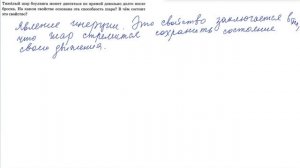 Тяжёлый шар боулинга может двигаться по прямой довольно долго после
броска. На каком свойстве основана эта способность шара? В чём состоит
это свойство?
Явление инерции. Это свойство заключается в том,
что шар стремится сохранить состояние
своего движения.